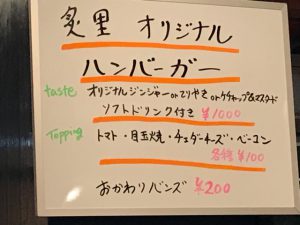 炙里 オリジナル
ハンバーガー
taste オリジナルジンジャー or てりやき or ケチャップ&マスタード
ソフトドリンク付き ¥1000
Topping トマト・目玉焼・チェダーチーズ・ベーコン
各種 ¥100
おかわりバンズ ¥200